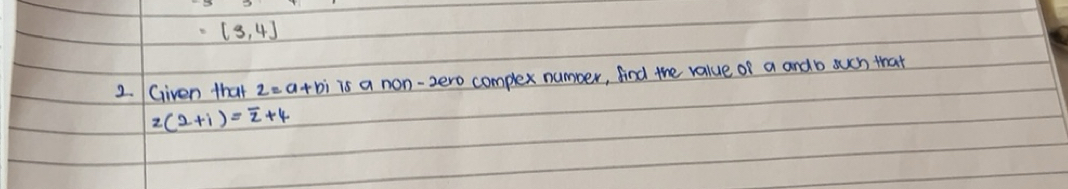 = [3,4]
2. Given that z=a+bi is a non-zero complex number, find the value of a and b such that
z(2+i) = z̅+4